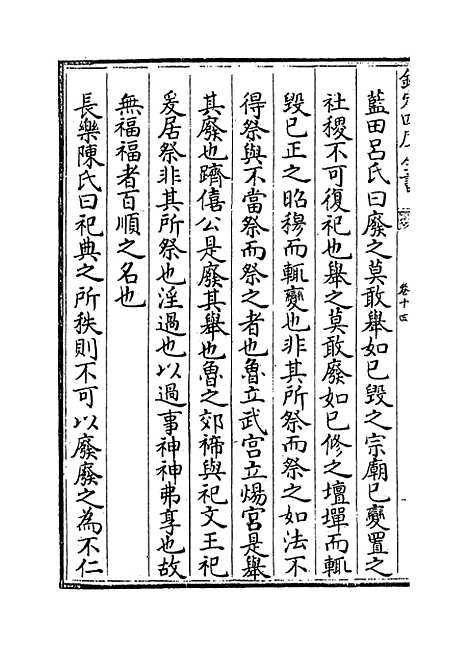 欽定四庫全書
卷十四
藍田呂氏曰廢之莫敢舉如已毀之宗廟已變置之
社稷不可復祀也舉之莫敢廢如已修之壇墠而輒
毀已正之昭穆而輒變也非其所祭而祭之如法不
得祭與不當祭而祭之者也魯立武宮立煬宮是舉
其廢也躋僖公是廢其舉也魯之郊禘與祀文王祀
爰居祭非其所祭也淫過也以過事神神弗享也故
無福福者百順之名也
長樂陳氏曰祀典之所秩則不可以廢廢之為不仁